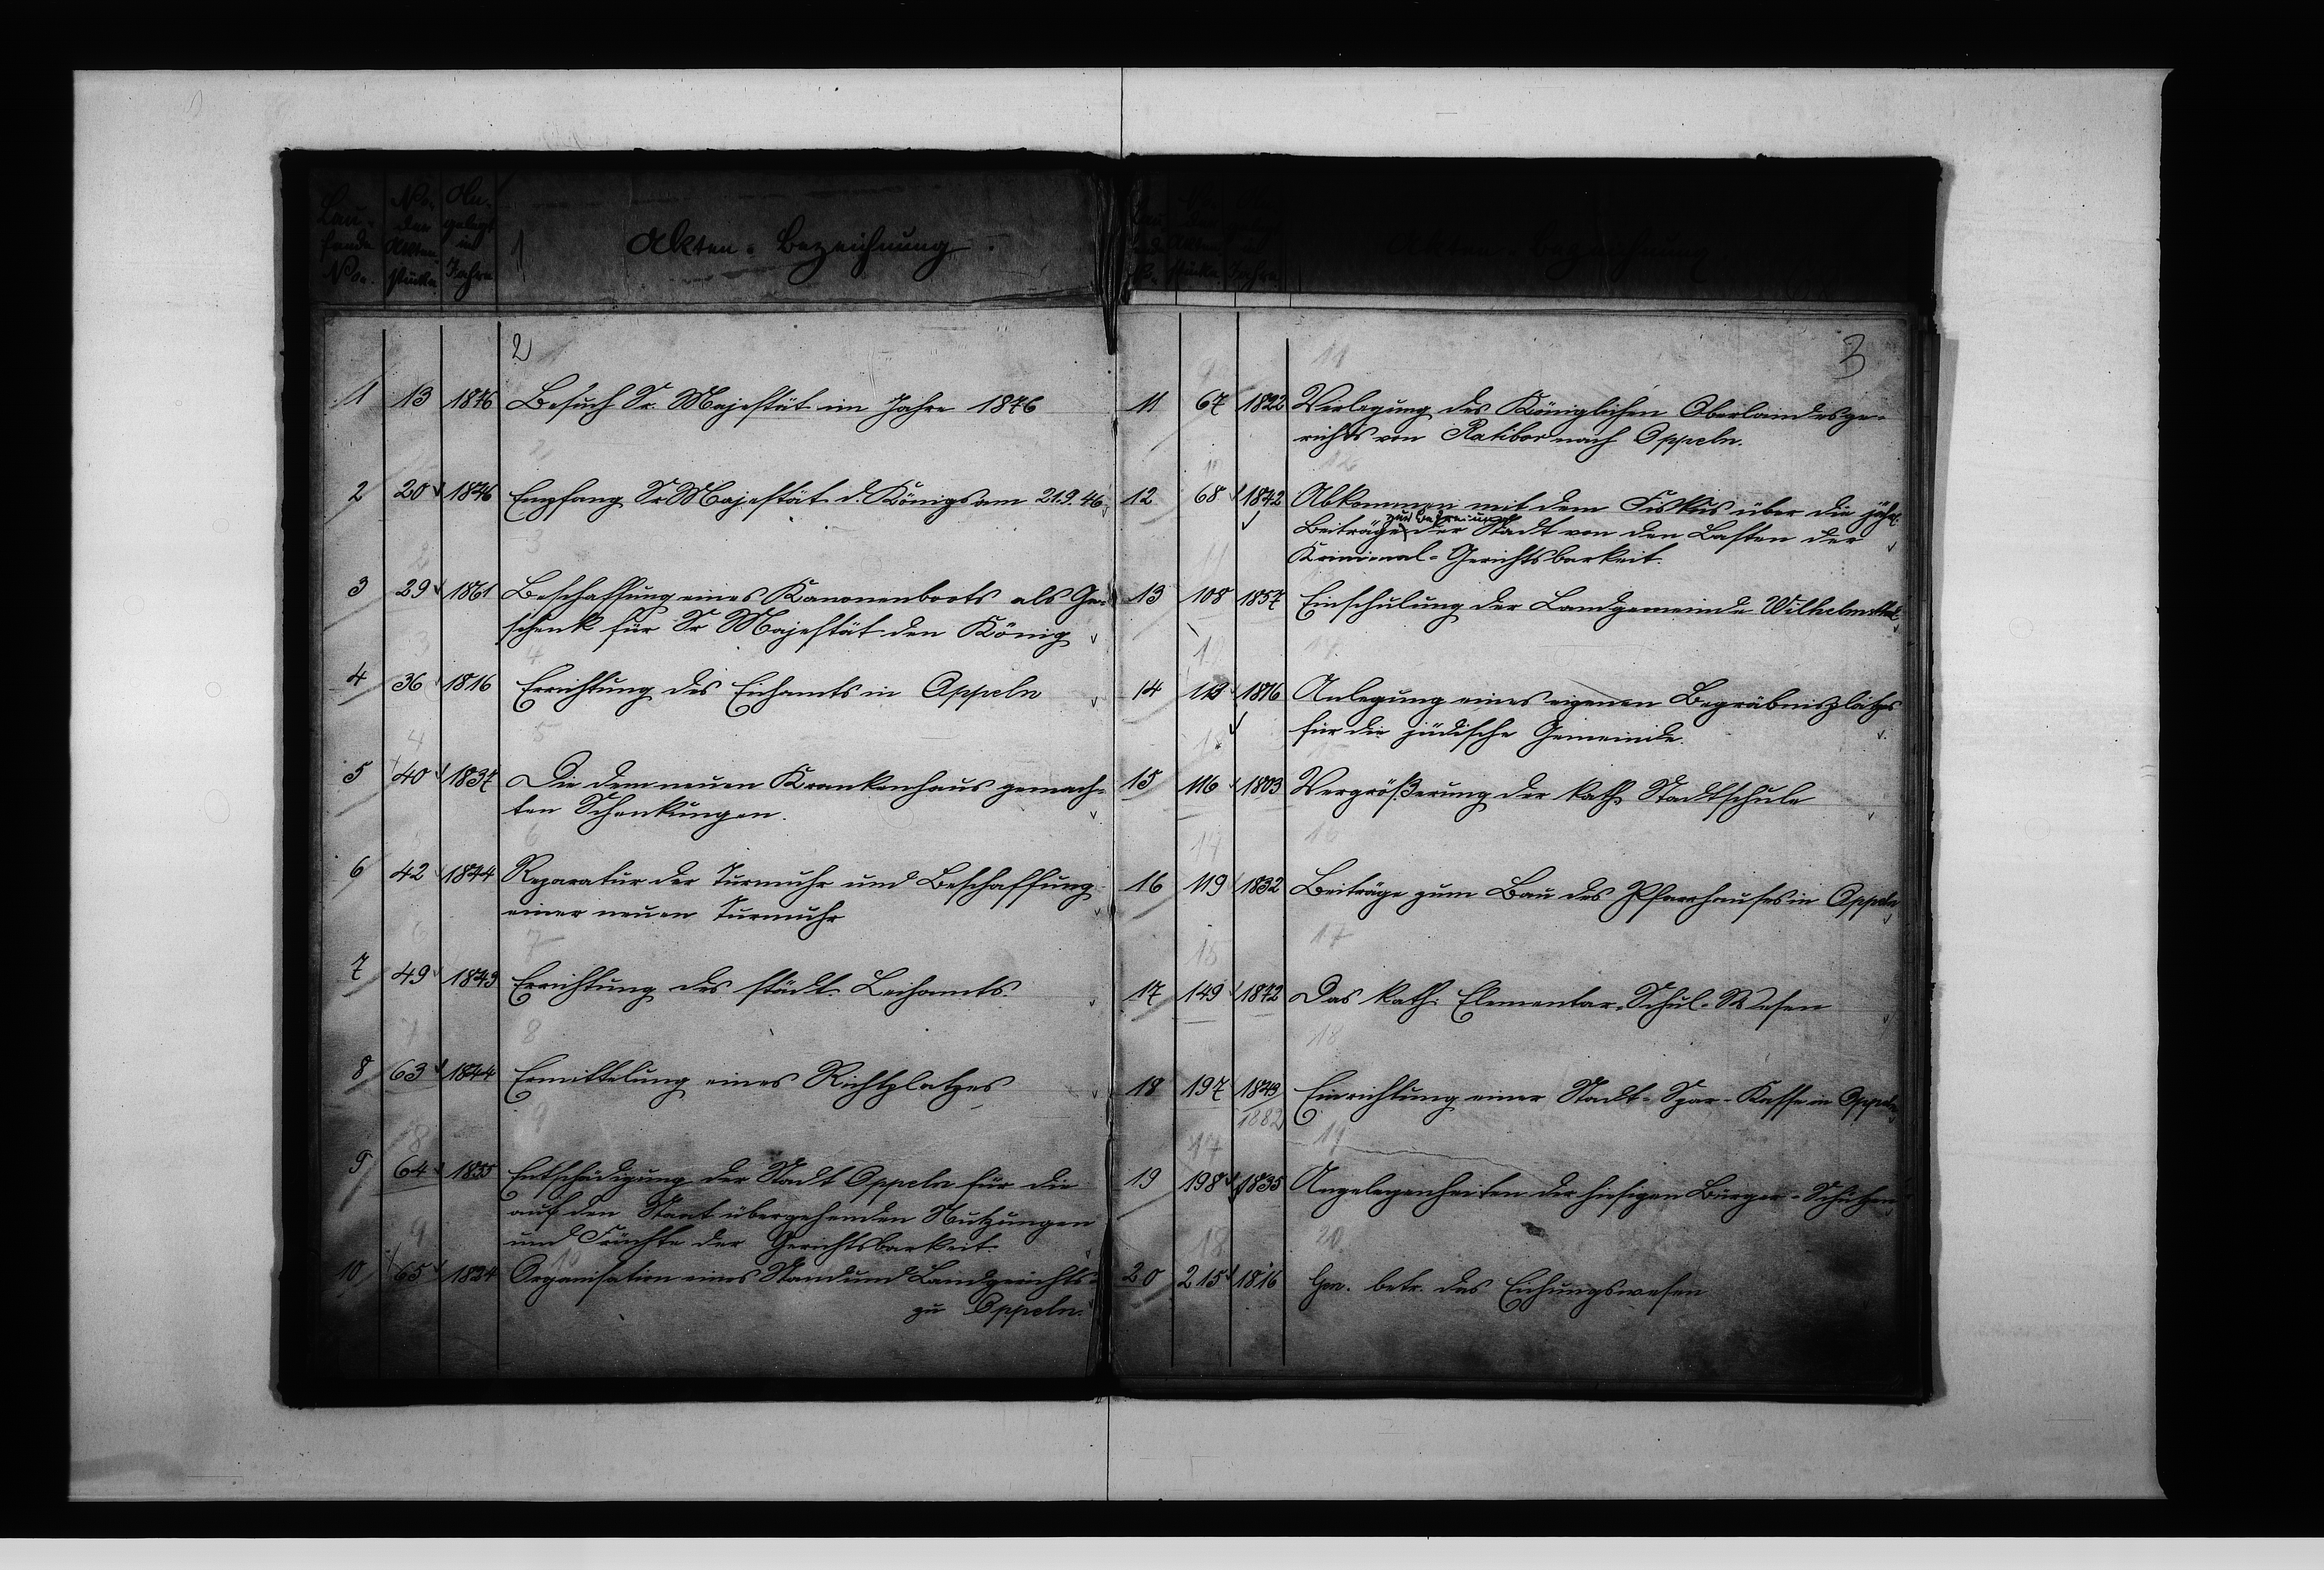 Laufende No.
No. der Aktenstücke
Angelegt im Jahre
Akten-Bezeichnung.
2
1 13 1876 Besuch Sr. Majestät im Jahre 1876
2 20 1846 Empfang Sr Majestät d. Königs am 21.9.46.
3 29 1861 Beschaffung eines Kanonenboots als Ge-
schenk für Sr Majestät den König
4 36 1816 Errichtung des Eichamts in Oppeln
5 40 1837 Die dem neuen Krankenhaus gemach-
ten Schenkungen.
6 42 1844 Reparatur der Turmuhr und Beschaffung
einer neuen Turmuhr
7 49 1843 Errichtung des städt. Leihamts.
8 63 1844 Ermittelung eines Richtplatzes
9 64 1855 Entschädigung der Stadt Oppeln für die
auf den Staat übergehenden Nutzungen
und Früchte der Gerichtsbarkeit.
10 65 1824 Organisation eines Stand und Landgerichts
zu Oppeln.
Akten-Bezeichnung
3
11 67 1822 Verlegung des Königlichen Oberlandesge-
richts von Ratibor nach Oppeln.
12 68 1842 Abkommen mit dem Fiskus über die jährl.
zur Befreiung
Beiträge der Stadt von den Lasten der
Kriminal-Gerichtsbarkeit.
13 108 1857 Einschulung der Landgemeinde Wilhelmsthal
14 113 1816 Anlegung eines eigenen Begräbnisplatzes
für die jüdische Gemeinde.
15 116 1803 Vergrößerung der kath. Stadtschule
16 119 1832 Beiträge zum Bau des Pfarrhauses in Oppeln
17 149 1872 Das kath. Elementar-Schul-Wesen
18 197 1843 Einrichtung einer Stadt-Spar-Kasse in Oppeln
1882
19 198 1835 Angelegenheiten der hiesigen Bürger-Schützen
20 215 1816 Gen. betr. das Eichungswesen